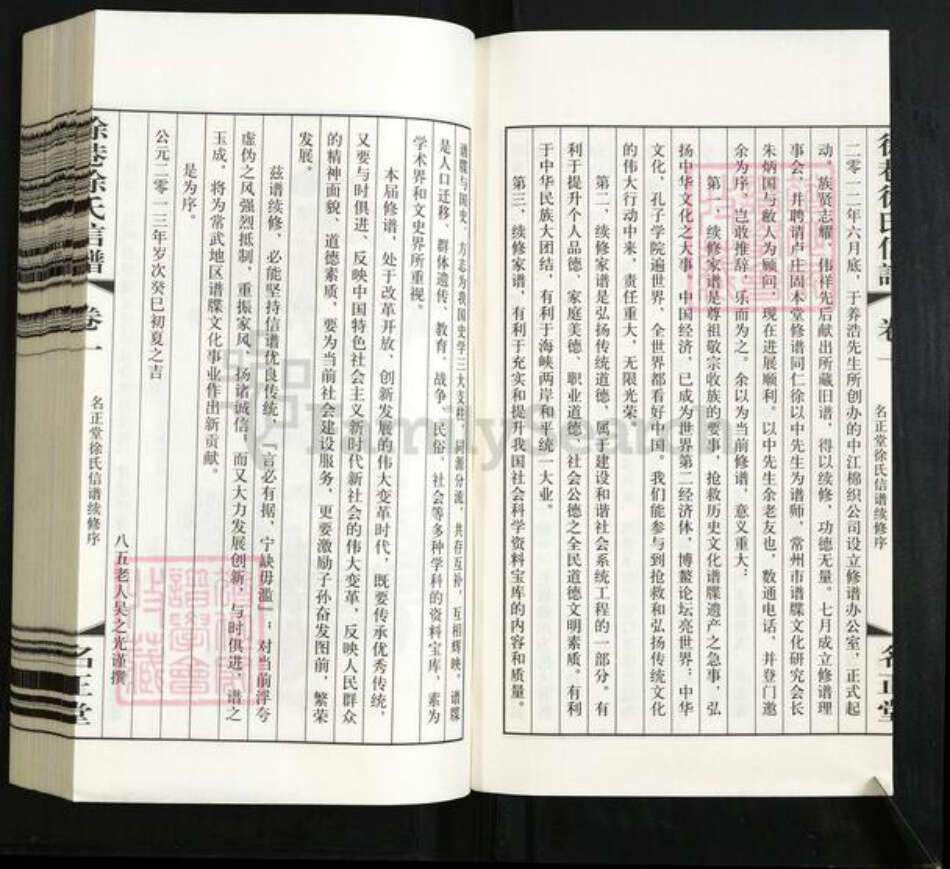 二零一二年六月底，于养浩先生所创办的中江棉织公司设立修谱办公室，正式起
动。族贤志耀、伟祥先后献出所藏旧谱，得以续修，功德无量。七月成立修谱理
事会，并聘请卢庄固本堂修谱同仁徐以中先生为谱师，常州市谱牒文化研究会长
朱炳国与敝人为顾问，现在进展顺利。以中先生余老友也，数通电话，并登门邀
余为序，岂敢推辞，乐而为之。余以为当前修谱，意义重大：
第一，续修家谱是尊祖敬宗收族的要事，抢救历史文化谱牒遗产之急事，弘
扬中华文化之大事。中国经济，已成为世界第二经济体，博鳌论坛亮世界；中华
文化，孔子学院遍世界，全世界都看好中国。我们能参与到抢救和弘扬传统文化
的伟大行动中来，责任重大，无限光荣。
第二，续修家谱是弘扬传统道德，属于建设和谐社会系统工程的一部分。有
利于提升个人品德、家庭美德、职业道德、社会公德之全民道德文明素质。有利
于中华民族大团结，有利于海峡两岸和平统一大业。
第三，续修家谱，有利于充实和提升我国社会科学资料宝库的内容和质量。
名正堂徐氏信谱续修序
名正堂
谱牒与国史、方志为我国史学三大支柱，同源分流，共存互补，互相辉映，谱牒
是人口迁移、群体遗传、教育、战争、民俗、社会等多种学科的资料宝库，素为
学术界和文史界所重视。
本届修谱，处于改革开放、创新发展的伟大变革时代，既要传承优秀传统，
又要与时俱进、反映中国特色社会主义新时代新社会的伟大变革，反映人民群众
的精神面貌、道德素质，要为当前社会建设服务，更要激励子孙奋发图前，繁荣
发展。
兹谱续修，必能坚持信谱优良传统，「言必有据，宁缺毋滥」；对当前浮夸
虚伪之风强烈抵制，重振家风，扬诸诚信，而又大力发展创新，与时俱进，谱之
玉成，将为常武地区谱牒文化事业作出新贡献。
是为序。
公元二零一三年岁次癸巳初夏之吉
八五老人吴之光谨撰
徐巷徐氏信谱
卷一
名正堂徐氏信谱续修序
名正堂
FamilySearch